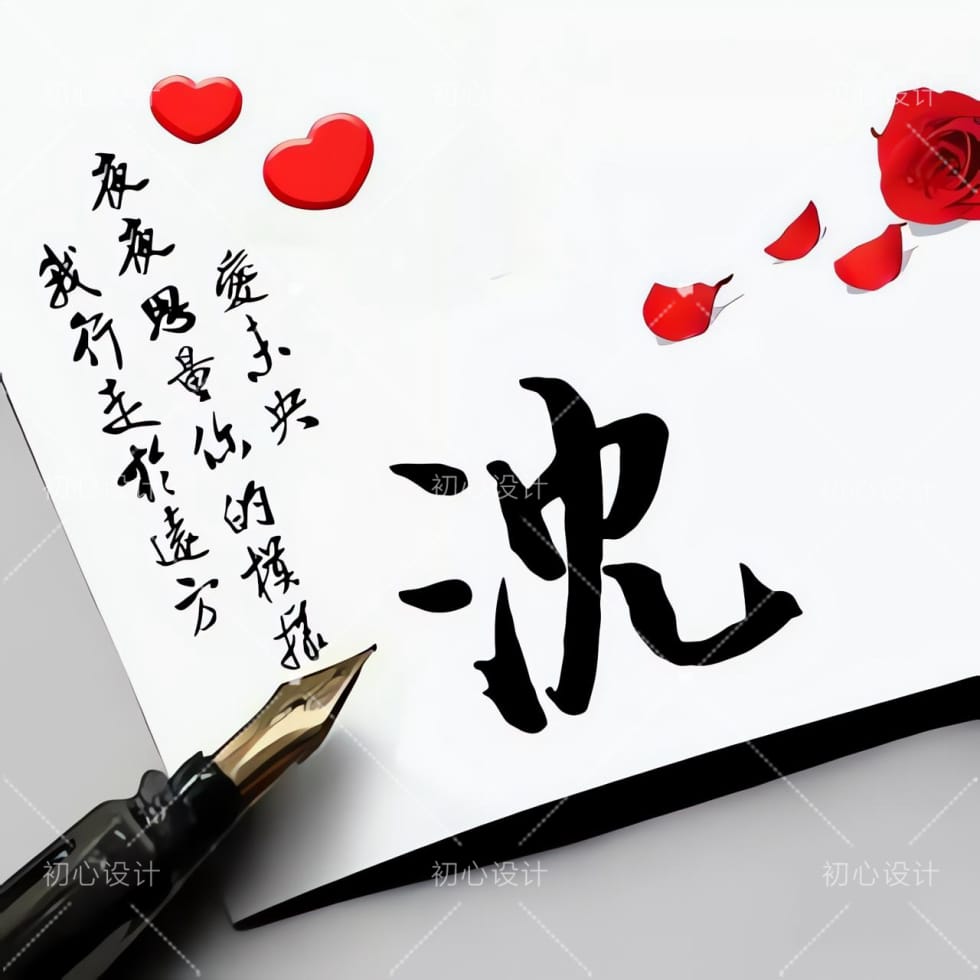 愛未央
夜夜思量你的模樣
我行走於遠方
沈
初心设计
初心设计
初心设计
初心设计
初心设计
初心设计
初心设计
初心设计
初心设计